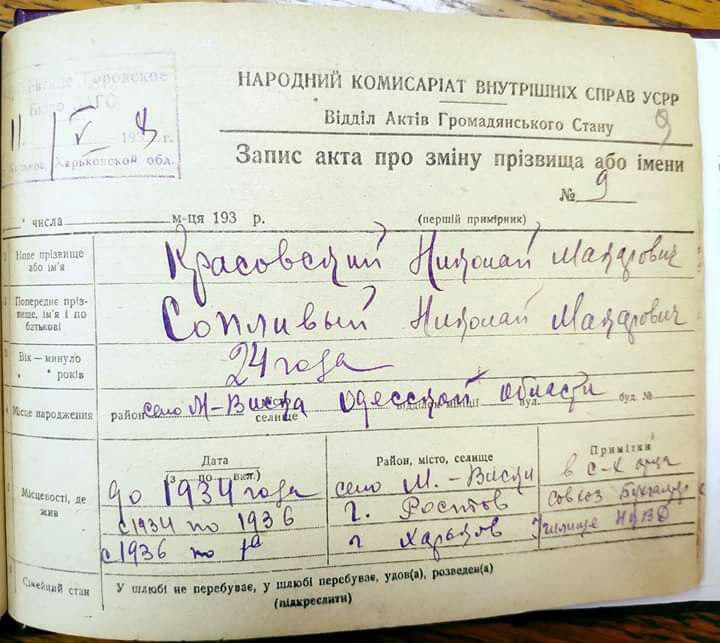 Городское
Бюро ЗАГС
11. V 1938 г.
Харьковской обл.
НАРОДНИЙ КОМИСАРІАТ ВНУТРІШНІХ СПРАВ УСРР
Відділ Актів Громадянського Стану
Запис акта про зміну прізвища або імени
№ 9
" числа м-ця 193 р. (перший примірник)
Нове прізвище або ім'я
Красовский Николай Макарович
Попереднє прізвище, ім'я і по батькові
Сопливый Николай Макарович
Вік — минуло " " років
24 года
Місце народження
район село М-Виска Одесской области
селище відділок міліції вул. буд. №
Місцевості, де жив
Дата (з по вкл.) Район, місто, селище Примітки
до 1934 года село М.-Виски в с-х отца
с 1934 по 1936 г. Ростов совхоз Бухгалтер
с 1936 по г Харьков Училище НКВД
Сімейний стан
У шлюбі не перебуває, у шлюбі перебуває, удов(а), розведен(а)
(підкреслити)